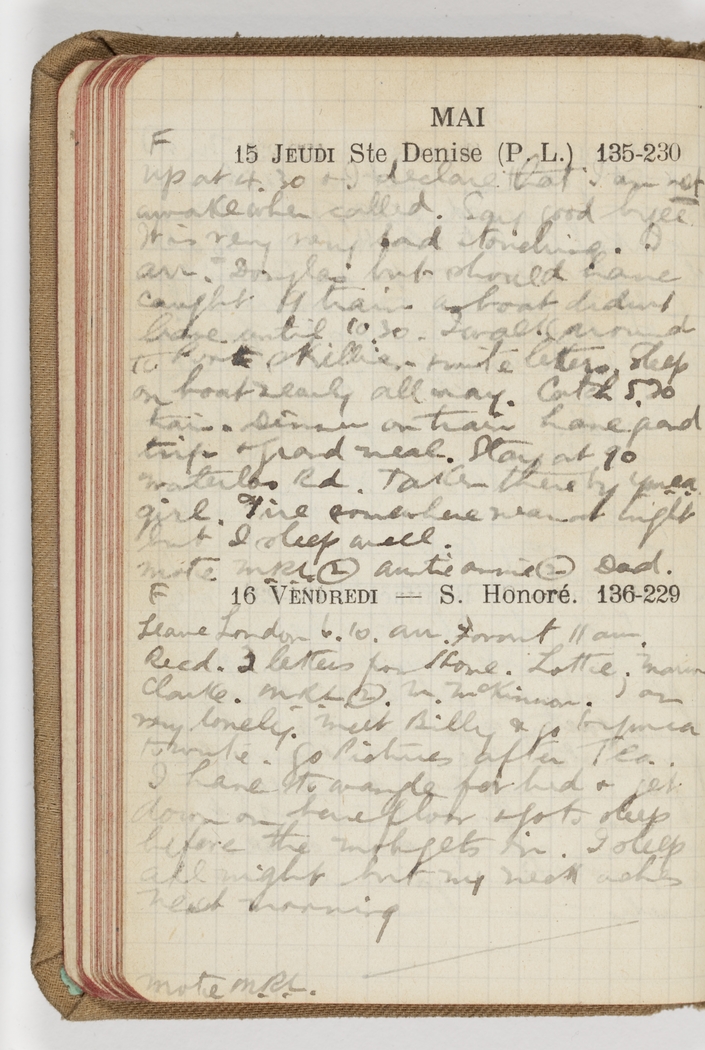 MAI
F
15 JEUDI Ste Denise (P. L.) 135-230
up at 4.30 & I declare that I am not
awake when called. Say good byee
It is very very hard
arr. Douglas but should have
caught train as boat didnt
leave until 10.30. I walk around
to & write letters. Sleep
on boat nearly all way. Catch 5.30
train. Dinner on train have good
trip & grand meal. Stay at 90
Waterloo Rd. Taken there by
girl. Fire somewhere near at night
but I sleep well.
wrote M.R.L. (2) auntie annie (2) Dad.
F
16 VENDREDI — S. Honoré. 136-229
Leave London 6.10. arr. Fovant 11 am.
Recd. letters from Home. Lottie. Marion
Clarke. M.R.L. (2). M. McKinnon. I am
very lonely. Meet Billy & go to ymca
to write. Go Pictures after Tea.
I have to wangle for bed & get
down on bare floor & go to sleep
before the mob gets in. I sleep
all night but my neck aches
next morning
wrote M.R.L.